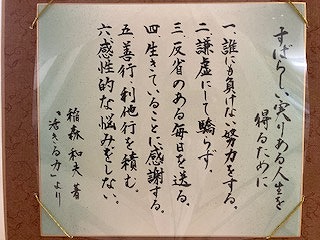 すばらしい実りある人生を
得るために
一、誰にも負けない努力をする。
二、謙虚にして驕らず。
三、反省のある毎日を送る。
四、生きていることに感謝する。
五、善行、利他行を積む。
六、感性的な悩みをしない。
稲森和夫著
「考きる力」より